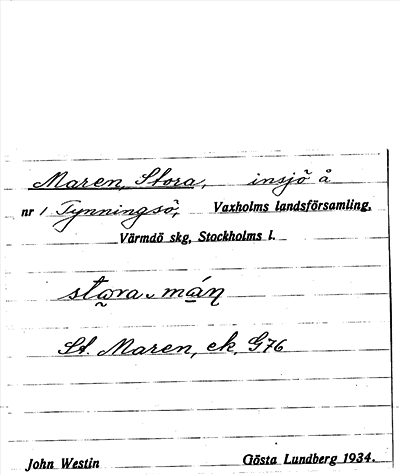 Maren, Stora, insjö å
nr 1 Tynningsö, Vaxholms landsförsamling,
Värmdö skg, Stockholms l.
stora mán
St. Maren, ek. G76
John Westin Gösta Lundberg 1934.